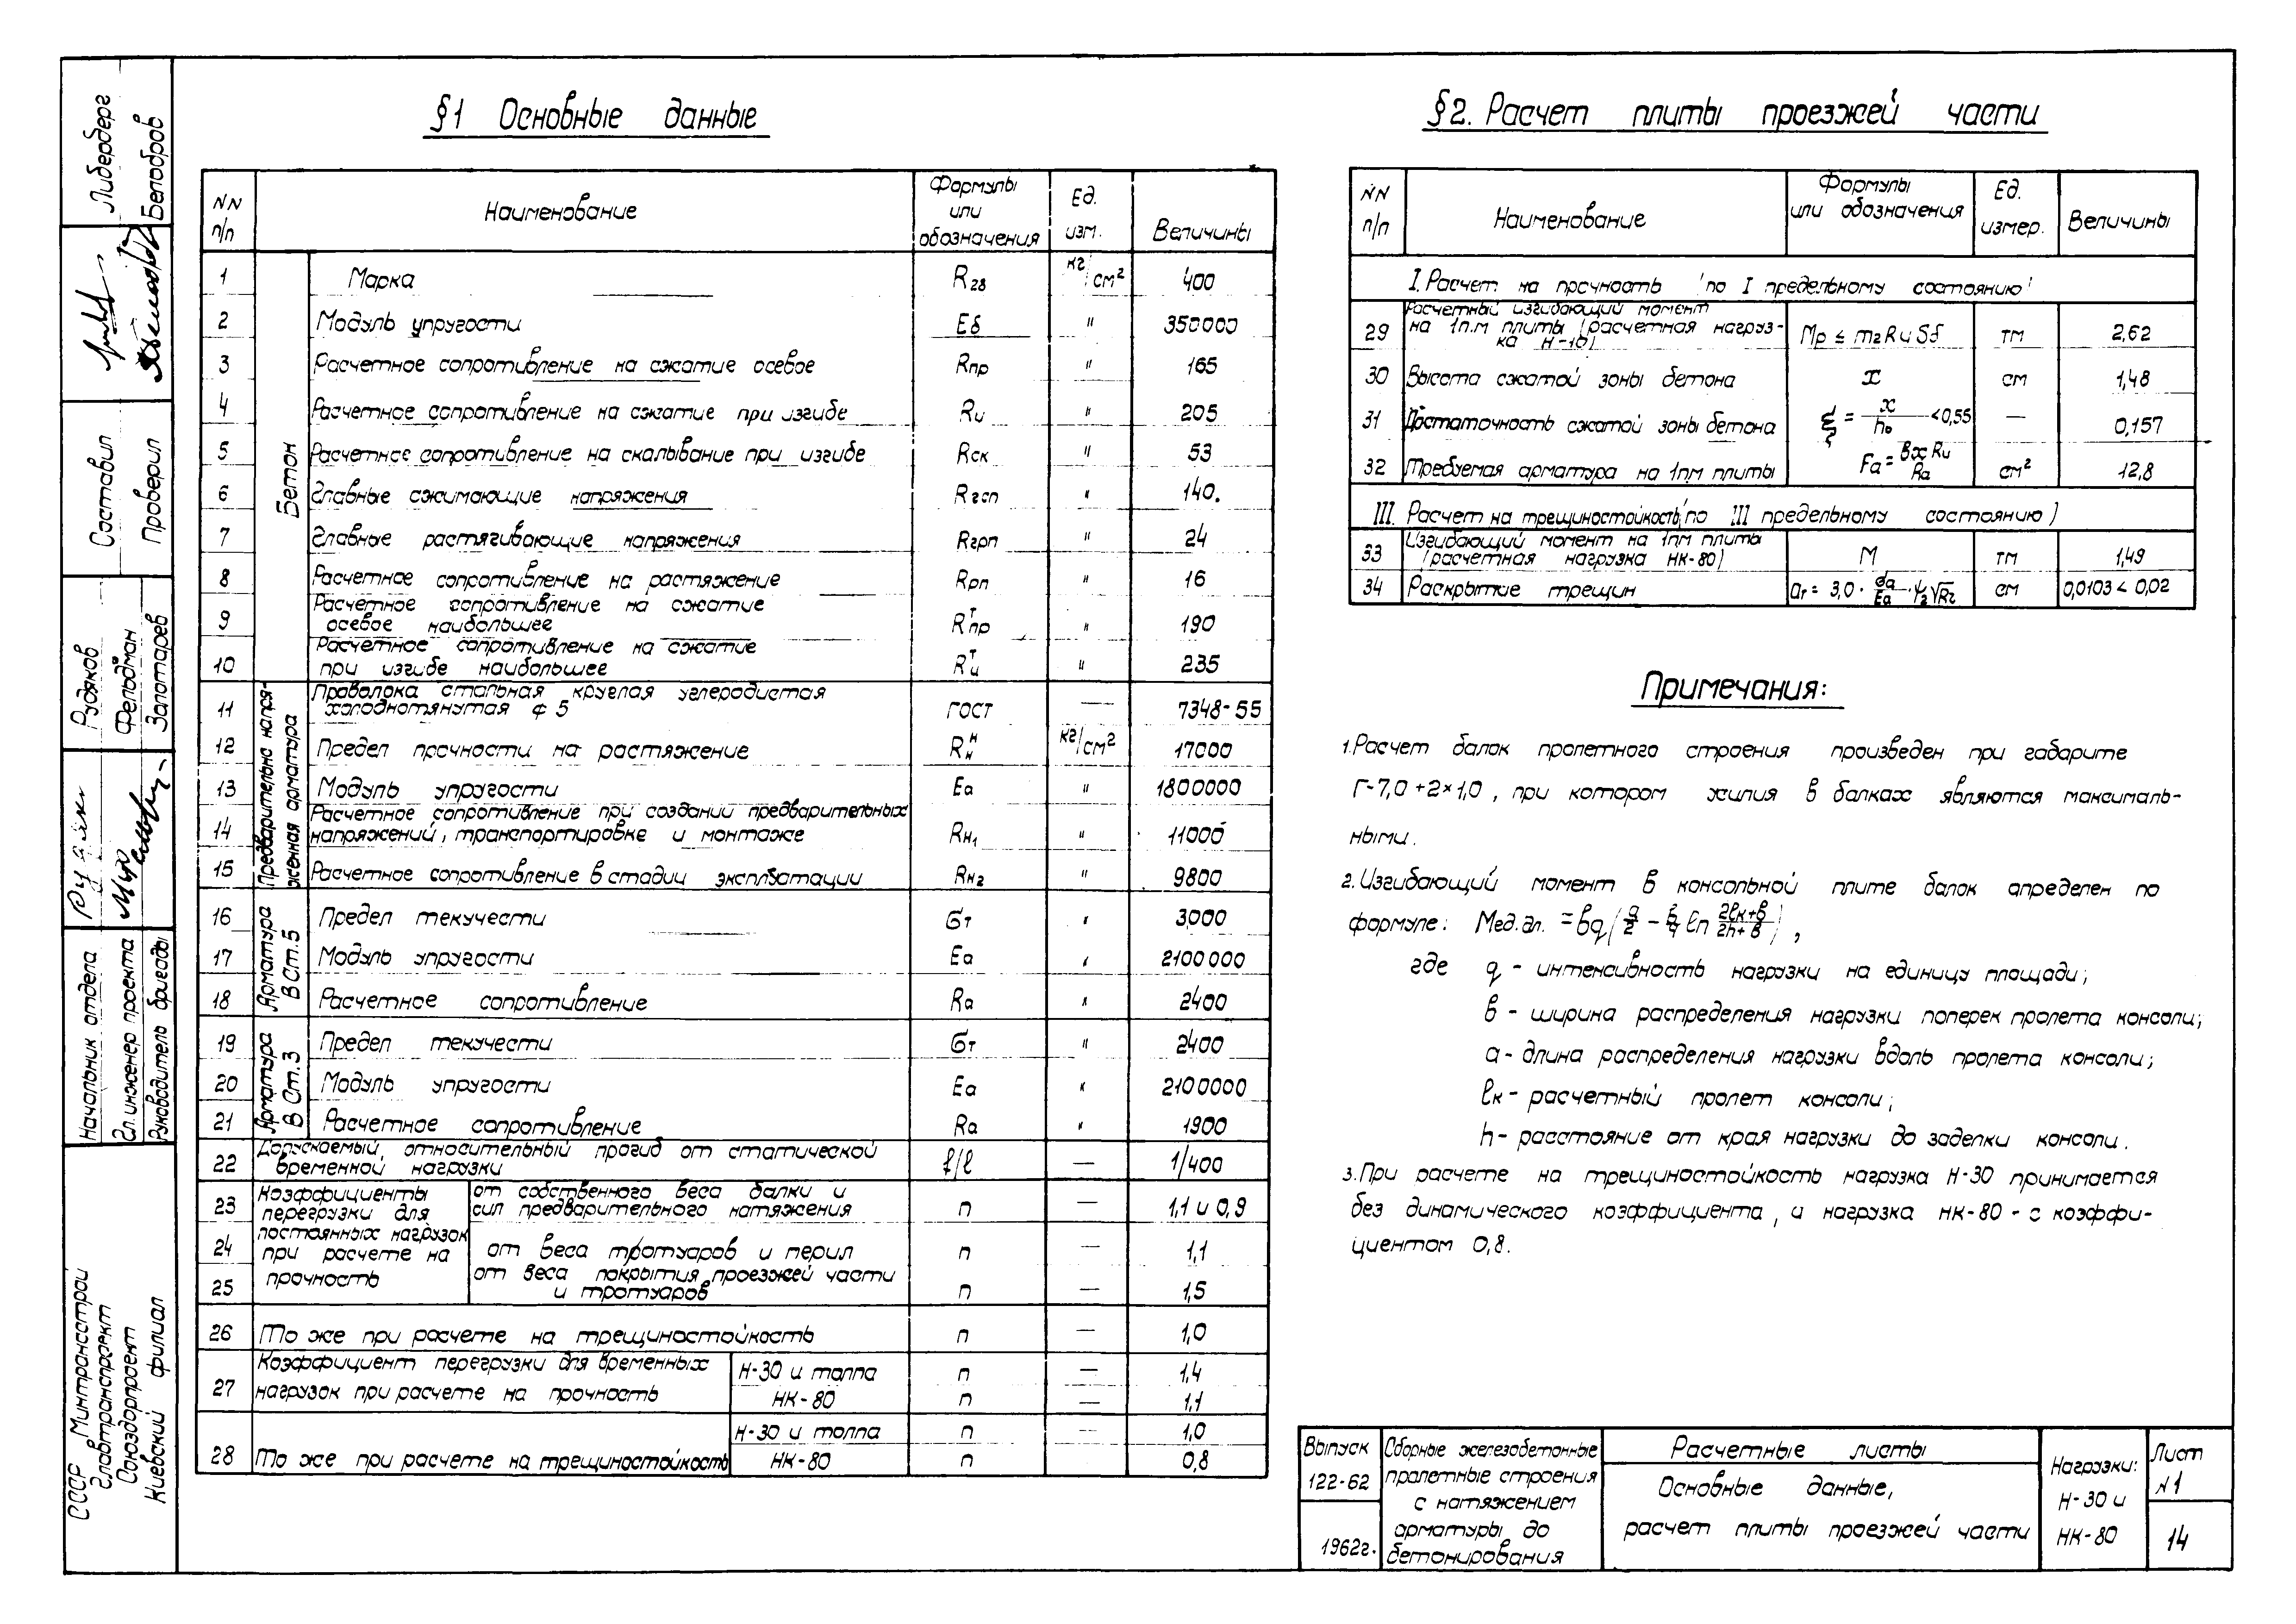 §1 Основные данные
NN п/п | Наименование | Формулы или обозначения | Ед. изм. | Величины
Бетон
1 | Марка | R28 | кг/см² | 400
2 | Модуль упругости | Еб | " | 350000
3 | Расчетное сопротивление на сжатие осевое | Rпр | " | 165
4 | Расчетное сопротивление на сжатие при изгибе | Rи | " | 205
5 | Расчетное сопротивление на скалывание при изгибе | Rск | " | 53
6 | Главные сжимающие напряжения | Rгсп | " | 140.
7 | Главные растягивающие напряжения | Rгрп | " | 24
8 | Расчетное сопротивление на растяжение | Rрп | " | 16
9 | Расчетное сопротивление на сжатие осевое наибольшее | Rᵀпр | " | 190
10 | Расчетное сопротивление на сжатие при изгибе наибольшее | Rᵀи | " | 235
Предварительно напря-
женная арматура
11 | Проволока стальная круглая углеродистая холоднотянутая ϕ 5 | ГОСТ | — | 7348-55
12 | Предел прочности на растяжение | Rᴴн | кг/см² | 17000
13 | Модуль упругости | Еа | " | 1800000
14 | Расчетное сопротивление при создании предварительных напряжений, транспортировке и монтаже | Rн1 | " | 11000
15 | Расчетное сопротивление в стадии эксплуатации | Rн2 | " | 9800
Арматура
В Ст.5
16 | Предел текучести | σт | " | 3000
17 | Модуль упругости | Еа | " | 2100000
18 | Расчетное сопротивление | Rа | " | 2400
Арматура
В Ст.3
19 | Предел текучести | σт | " | 2400
20 | Модуль упругости | Еа | " | 2100000
21 | Расчетное сопротивление | Rа | " | 1900
22 | Допускаемый, относительный прогиб от статической временной нагрузки | f/ℓ | — | 1/400
Коэффициенты перегрузки для постоянных нагрузок при расчете на прочность
23 | от собственного веса балки и сил предварительного натяжения | п | — | 1,1 и 0,9
24 | от веса тротуаров и перил | п | — | 1,1
25 | от веса покрытия проезжей части и тротуаров | п | — | 1,5
26 | То же при расчете на трещиностойкость | п | — | 1,0
27 | Коэффициент перегрузки для временных нагрузок при расчете на прочность | Н-30 и толпа | п | — | 1,4
НК-80 | п | — | 1,1
28 | То же при расчете на трещиностойкость | Н-30 и толпа | п | 1,0
НК-80 | п | 0,8
§2. Расчет плиты проезжей части
NN п/п | Наименование | Формулы или обозначения | Ед. измер. | Величины
I. Расчет на прочность (по I предельному состоянию)
29 | Расчетный изгибающий момент на 1п.м плиты (расчетная нагрузка Н-10) | Мр ≤ m2RиSб | тм | 2,62
30 | Высота сжатой зоны бетона | x | см | 1,48
31 | Достаточность сжатой зоны бетона | ξ = x/h₀ < 0,55 | — | 0,157
32 | Требуемая арматура на 1пм плиты | Fа = вxRи/Rа | см² | 12,8
III. Расчет на трещиностойкость (по III предельному состоянию)
33 | Изгибающий момент на 1пм плиты (расчетная нагрузка НК-80) | М | тм | 1,49
34 | Раскрытие трещин | aт = 3,0 · σа/Eа · ψ2√Rг | см | 0,0103 < 0,02
Примечания:
1. Расчет балок пролетного строения произведен при габарите
Г-7,0 + 2×1,0, при котором усилия в балках являются максималь-
ными.
2. Изгибающий момент в консольной плите балок определен по
формуле: Мед.дл. = вq(a/2 − в/4 ℓп 2ℓк+в/2h+в),
где q - интенсивность нагрузки на единицу площади;
в - ширина распределения нагрузки поперек пролета консоли;
а - длина распределения нагрузки вдоль пролета консоли;
ℓк - расчетный пролет консоли;
h - расстояние от края нагрузки до заделки консоли.
3. При расчете на трещиностойкость нагрузка Н-30 принимается
без динамического коэффициента, и нагрузка НК-80 - с коэффи-
циентом 0,8.
Выпуск
122-62
1962г.
Сборные железобетонные
пролетные строения
с натяжением
арматуры до
бетонирования
Расчетные листы
Основные данные,
расчет плиты проезжей части
Нагрузки:
Н-30 и
НК-80
Лист
N1
14
Либерберг
Белобров
Составил
Проверил
Рудяков
Фельдман
Золотарев
Начальник отдела
Гл. инженер проекта
Руководитель бригады
СССР Минтрансстрой
Главтранспроект
Союздорпроект
Киевский филиал